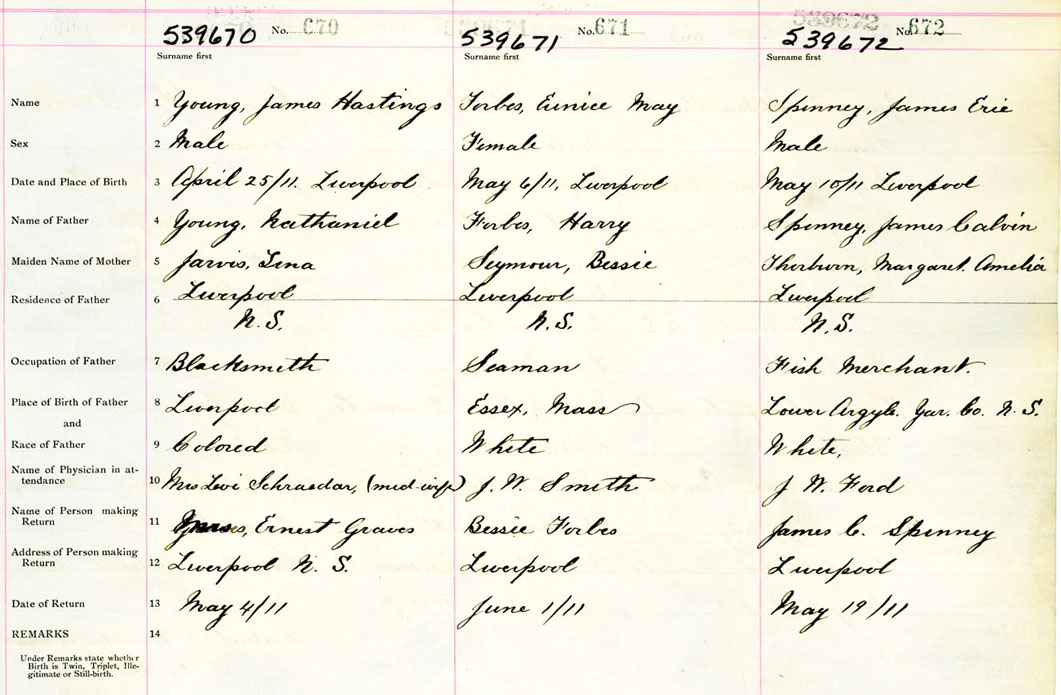 539670 No. 670 539671 No. 671 539672 No. 672
Surname first Surname first Surname first
Name 1 Young, James Hastings Forbes, Eunice May Spinney, James Eric
Sex 2 Male Female Male
Date and Place of Birth 3 April 25/11. Liverpool May 6/11, Liverpool May 10/11 Liverpool
Name of Father 4 Young, Nathaniel Forbes, Harry Spinney, James Calvin
Maiden Name of Mother 5 Jarvis, Lena Seymour, Bessie Thorburn, Margaret Amelia
Residence of Father 6 Liverpool Liverpool Liverpool
N.S. N.S. N.S.
Occupation of Father 7 Blacksmith Seaman Fish Merchant.
Place of Birth of Father 8 Liverpool Essex, Mass Lower Argyle. Yar. Co. N.S.
and
Race of Father 9 Colored White White,
Name of Physician in at-
tendance 10 Mrs Levi Schraedar, (mid-wife) J. W. Smith J W. Ford
Name of Person making
Return 11 Ernest Graves Bessie Forbes James C. Spinney
Address of Person making
Return 12 Liverpool N.S. Liverpool Liverpool
Date of Return 13 May 4/11 June 1/11 May 19/11
REMARKS 14
Under Remarks state whether
Birth is Twin, Triplet, Ille-
gitimate or Still-birth.